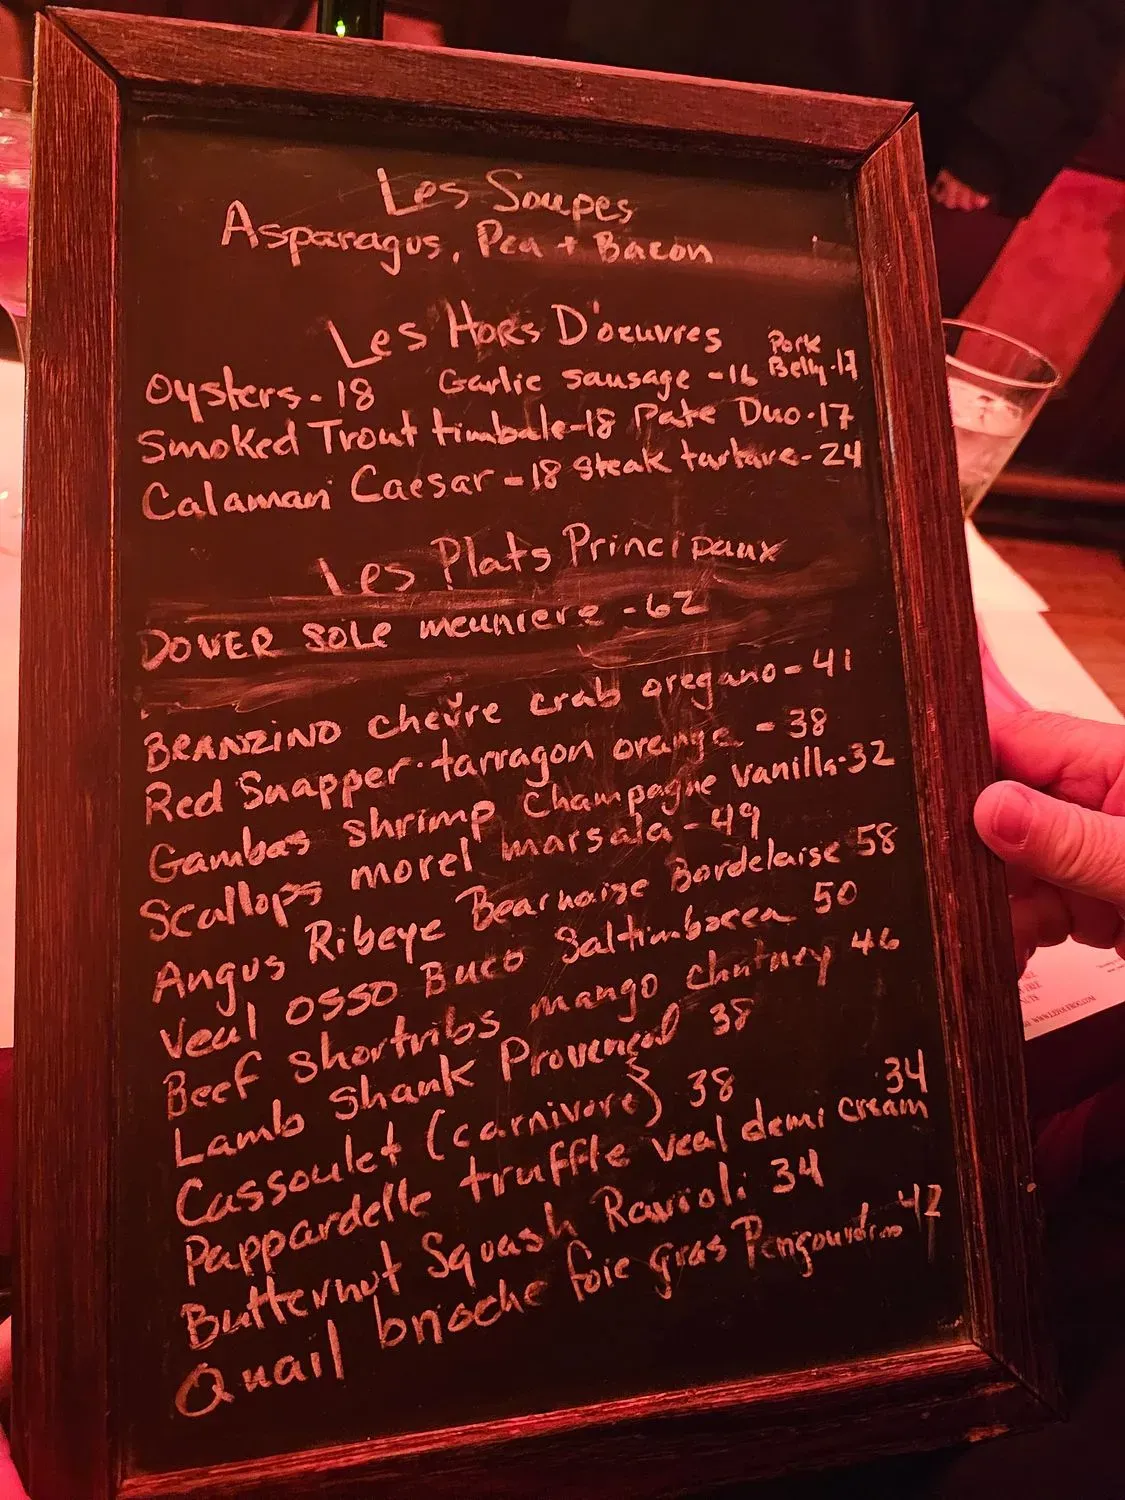 Les Soupes
Asparagus, Pea + Bacon
Les Hors D'oeuvres
Oysters - 18 Garlic sausage - 16 Pork Belly - 17
Smoked Trout timbale - 18 Pate Duo - 17
Calamari Caesar - 18 Steak tartare - 24
Les Plats Principaux
DOVER SOLE meuniere - 62
BRANZINO chevre crab oregano - 41
Red Snapper tarragon orange - 38
Gambas shrimp Champagne Vanilla - 32
Scallops morel marsala - 49
Angus Ribeye Bearnaise Bordelaise 58
Veal OSSO Buco Saltimbocca 50
Beef Shortribs mango chutney 46
Lamb Shank Provençal 38
Cassoulet (carnivore) 38
Pappardelle truffle veal demi cream 34
Butternut Squash Ravioli 34
Quail brioche foie gras 42